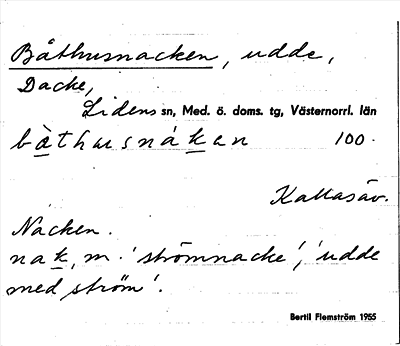 Båthusnacken, udde,
Dacke,
Lidens sn, Med. ö. doms. tg, Västernorrl. län
bàthusnákan 100.
Kallasäv.
Nacken.
nak, m. 'strömnacke', 'udde
med ström'.
Bertil Flemström 1955